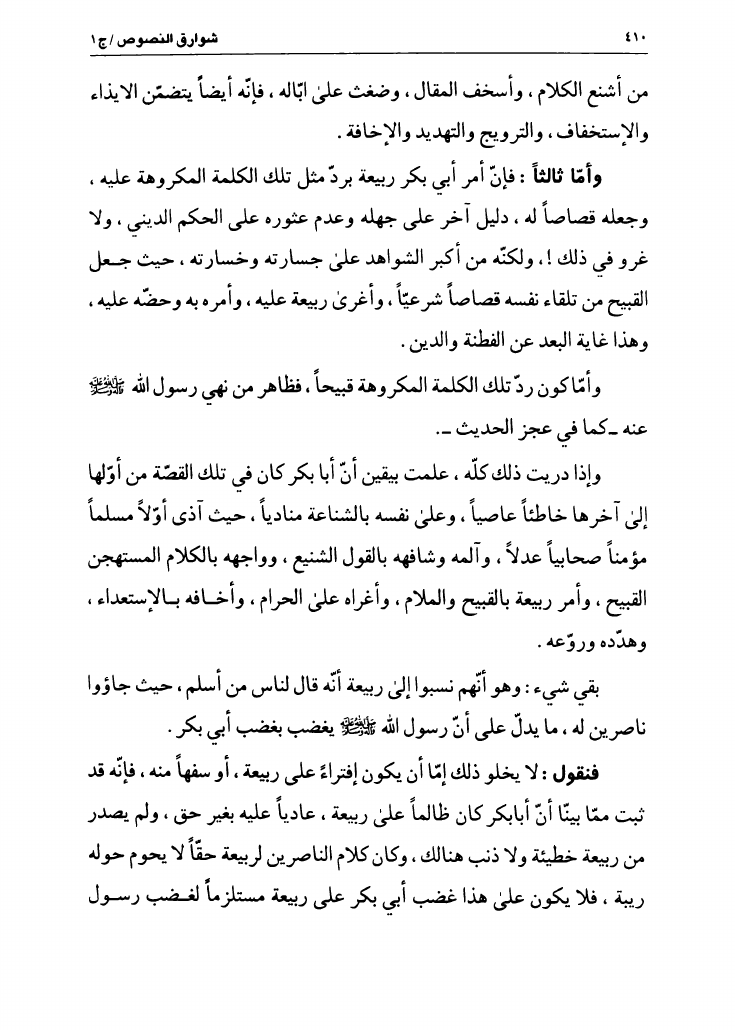 ٤١٠ شوارق النصوص / ج١
من أشنع الكلام ، وأسخف المقال ، وضغث علىٰ ابّاله ، فإنّه أيضاً يتضمّن الايذاء
والإستخفاف ، والترويج والتهديد والإخافة .
وأمّا ثالثاً : فإنّ أمر أبي بكر ربيعة بردّ مثل تلك الكلمة المكروهة عليه ،
وجعله قصاصاً له ، دليل آخر على جهله وعدم عثوره على الحكم الديني ، ولا
غرو في ذلك ! ، ولكنّه من أكبر الشواهد علىٰ جسارته وخسارته ، حيث جـعل
القبيح من تلقاء نفسه قصاصاً شرعيّاً ، وأغرىٰ ربيعة عليه ، وأمره به وحضّه عليه ،
وهذا غاية البعد عن الفطنة والدين .
وأمّا كون ردّ تلك الكلمة المكروهة قبيحاً ، فظاهر من نهي رسول الله ﷺ
عنه ـ كما في عجز الحديث ـ .
وإذا دريت ذلك كلّه ، علمت بيقين أنّ أبا بكر كان في تلك القصّة من أوّلها
إلىٰ آخرها خاطئاً عاصياً ، وعلىٰ نفسه بالشناعة منادياً ، حيث آذى أوّلاً مسلماً
مؤمناً صحابياً عدلاً ، وآلمه وشافهه بالقول الشنيع ، وواجهه بالكلام المستهجن
القبيح ، وأمر ربيعة بالقبيح والملام ، وأغراه علىٰ الحرام ، وأخـافه بـالإستعداء ،
وهدّده وروّعه .
بقي شيء : وهو أنّهم نسبوا إلىٰ ربيعة أنّه قال لناس من أسلم ، حيث جاؤوا
ناصرين له ، ما يدلّ على أنّ رسول الله ﷺ يغضب بغضب أبي بكر .
فنقول : لا يخلو ذلك إمّا أن يكون إفتراءً على ربيعة ، أو سفهاً منه ، فإنّه قد
ثبت ممّا بينّا أنّ أبابكر كان ظالماً علىٰ ربيعة ، عادياً عليه بغير حق ، ولم يصدر
من ربيعة خطيئة ولا ذنب هنالك ، وكان كلام الناصرين لربيعة حقّاً لا يحوم حوله
ريبة ، فلا يكون علىٰ هذا غضب أبي بكر على ربيعة مستلزماً لغـضب رسـول